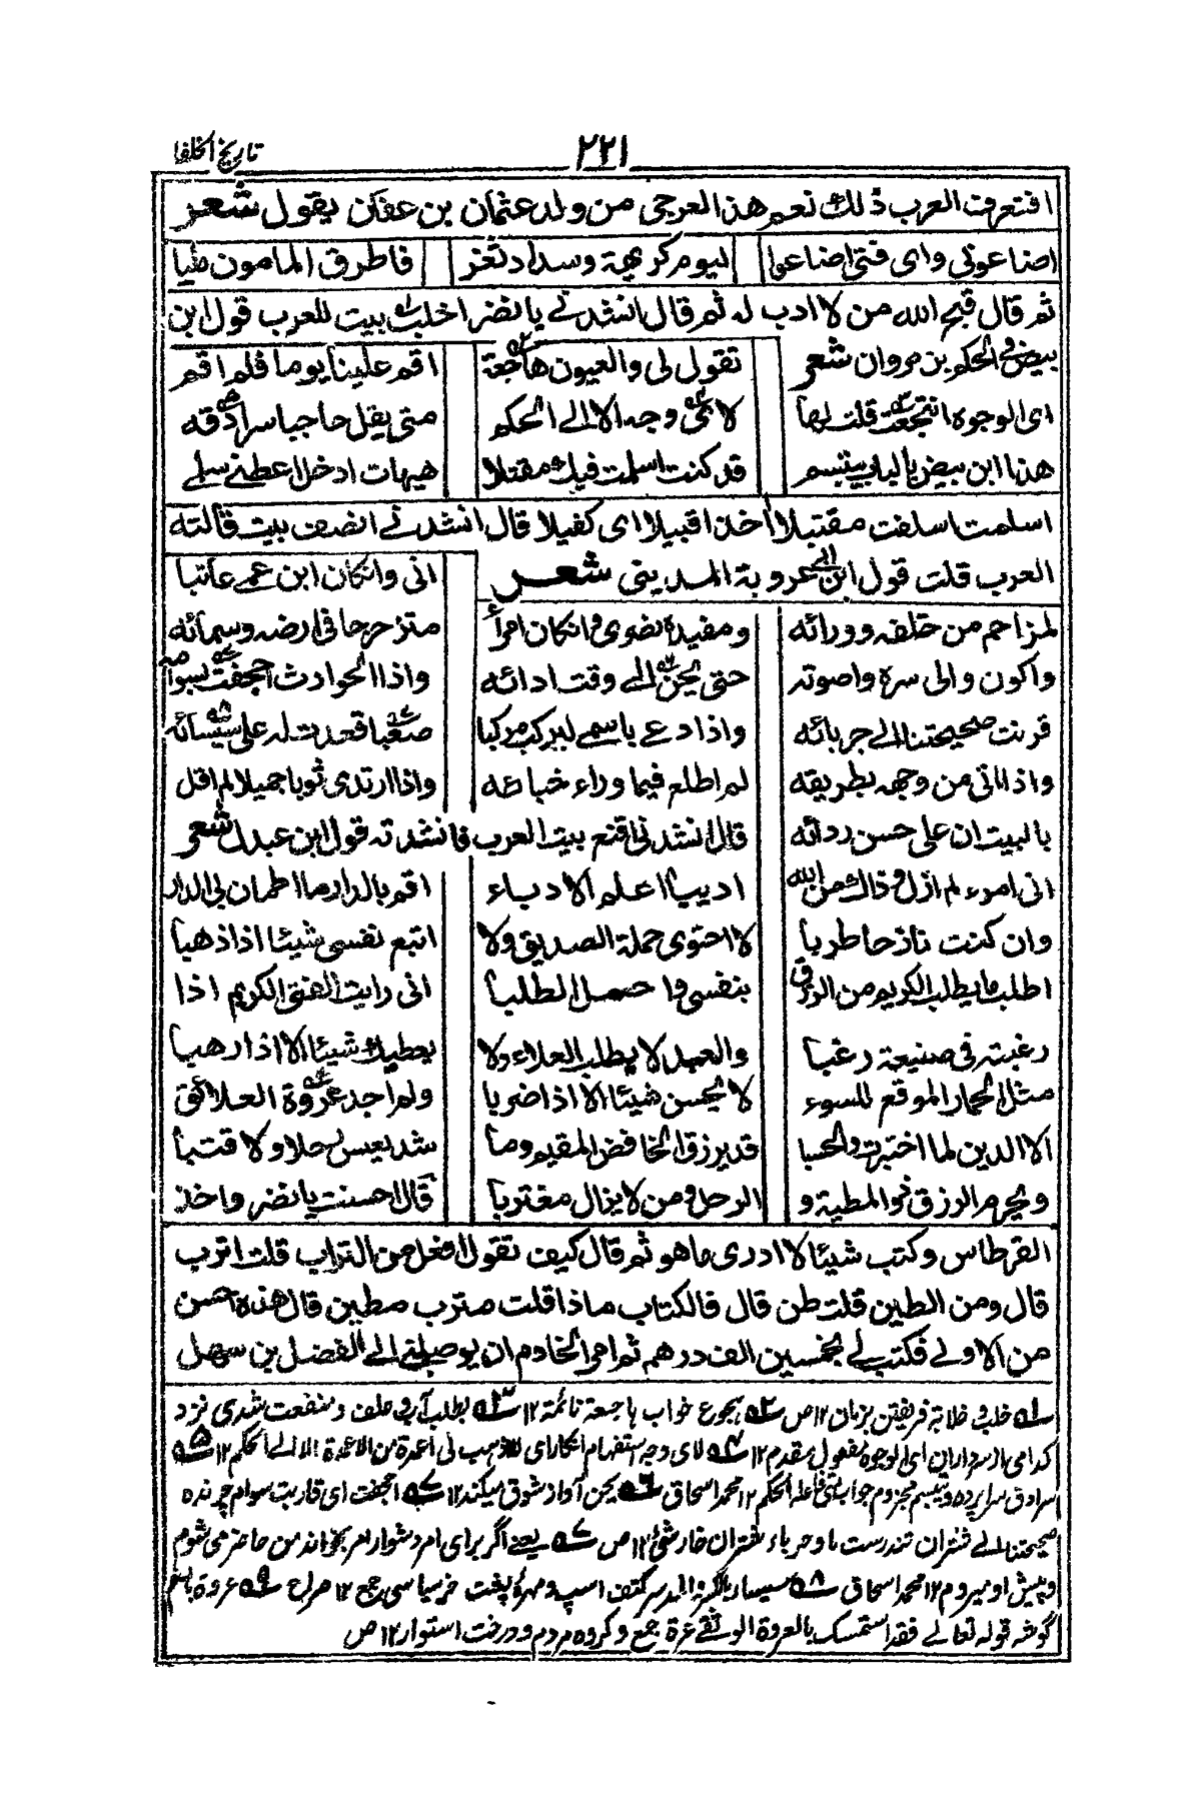 تاريخ الخلفا
٢٢١
افتعرف العرب ذلك نعم هذا العرجى من ولد عثمان بن عفان يقول شعر
اضاعونى واى فتى اضاعوا ليوم كريهة وسداد ثغر فاطرق المامون مليا
ثم قال قبح الله من لا ادب له ثم قال انشدنے يا نضر اخلب بيت للعرب قول ابن
بيض فى الحكم بن مروان شعر تقول لى والعيون هاجعة اقم علينا يوما فلم اقم
اى الوجوه انتجعت قلت لها لاى وجه الا الے الحكم متى يقل حاجبا سرادقه
هذا ابن بيض بالباب يبتسم قد كنت اسلمت فيك مقتبلا هيهات ادخل اعطنے سلمے
اسلمت اسلفت مقتبلا اخذا قبيلا اى كفيلا قال انشدنے انصف بيت قالته
العرب قلت قول ابن ابى عروبة المدينى شعر انى وانكان ابن عمے عاتبا
لمزاحم من خلفه وورائه ومفيده نضرى وانكان امرأ متزحزحا فى ارضه وسمائه
واكون والى سره واصونه حتى يحن الے وقت ادائه واذا الحوادث اجحفت بسوامه
قرنت صحيحتنا الے جربائه واذا دعے باسمے ليركب مركبا صعبا قعدت له على سيسائه
واذا اتى من وجهه بطريقه لم اطلع فيما وراء خبائه واذا ارتدى ثوبا جميلا لم اقل
يا ليت ان على حسن ردائه قال انشدنى اقنع بيت العرب فانشدته قول ابن عبدل شعر
انى امرء لم ازل وذاك من الله اديبا اعلم الادباء اقم بالدار ما اطمان بى الدار
وان كنت نازحا طربا لا احتوى حملة الصديق ولا اتبع نفسى شيئا اذا ذهبا
اطلب ما يطلب الكريم من الرزق بنفسى واحمل الطلبا انى رايت الفتى الكريم اذا
رغبته فى صنيعة رغبا والعبد لا يطلب العلاء ولا يعطيك شيئا الا اذا رهبا
مثل الحمار الموقع للسوء لا يحسن شيئا الا اذا ضربا ولم اجد عروة العلائق
الا الدين لما اختبرت والحسبا قد يرزق الخافض المقيم وما شد بعيس رحلا ولا قتبا
ويحرم الرزق ذو المطية و الرحل ومن لا يزال مغتربا قال احسنت يا نضر واخذ
القرطاس وكتب شيئا لا ادرى ما هو ثم قال كيف تقول افعل من التراب قلت اترب
قال ومن الطين قلت طن قال فالكتاب ماذا قلت مترب مطين قال هذه احسن
من الاولے فكتب لے بخمسين الف درهم ثم امر الخادم ان يوصلنے الے الفضل بن سهل
له خلب وخلابة فريفتن بزبان ١٢ ص ٢ هجوع خواب هاجعة نائمة ١٢ ٣ بطلب آب وعلف ومنفعت شدى نزد
كدامى از سرداران اى الوجوه مفعول مقدم ١٢ ٤ لاى وجه استفهام انكار اى لا ذهب لى الے الحكم ١٢ ٥
سرادق سراپرده ويبتسم مجزوم جواب متى فاعله الحكم ١٢ محمد اسحاق ٦ يحن آواز شوق ميكند ١٢ اجحفت اى قاربت سوام چرنده
صحيحتنا الے شتران تندرست ما وجرباء شتران خارشى ١٢ ص ٧ يعنے اگر براى امر دشوار مر بخواند من حاضر مى شوم
وپيش او ميروم ١٢ محمد اسحاق ٨ سيساء بالكسر والمد سر كتف اسپ ومهرهٔ پشت خر سياسى جمع ١٢ صراح ٩ عروة بالضم
گوشه قوله تعالے فقد استمسك بالعروة الوثقے عرة جمع وگروه مردم ودرخت استوار ١٢ ص